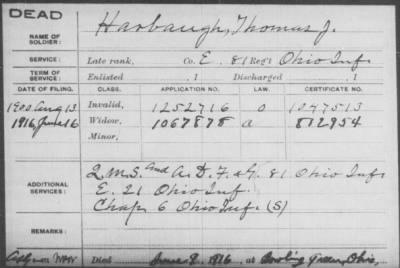 DEAD
NAME OF SOLDIER: Harbaugh, Thomas J.
SERVICE: Late rank, Co. E, 81 Reg't Ohio Inf.
TERM OF SERVICE: Enlisted , 1 Discharged , 1
DATE OF FILING. CLASS. APPLICATION NO. CERTIFICATE NO.
1900 Aug 13 Invalid, 1252716 O 1047513
1916, June 16 Widow, 1067878 a 812954
Minor,
ADDITIONAL SERVICES: Q.M.S. and A. D, F. & G. 81 Ohio Inf.
E. 21 Ohio Inf.
Chap 6 Ohio Inf. (S)
REMARKS:
Died June 9, 1916, at Bowling Green, Ohio,